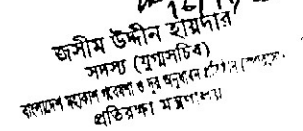 জসীম উদ্দীন হায়দার
সদস্য (যুগ্মসচিব)
বাংলাদেশ মহাকাশ গবেষণা ও দূর অনুধাবন প্রতিষ্ঠান
প্রতিরক্ষা মন্ত্রণালয়